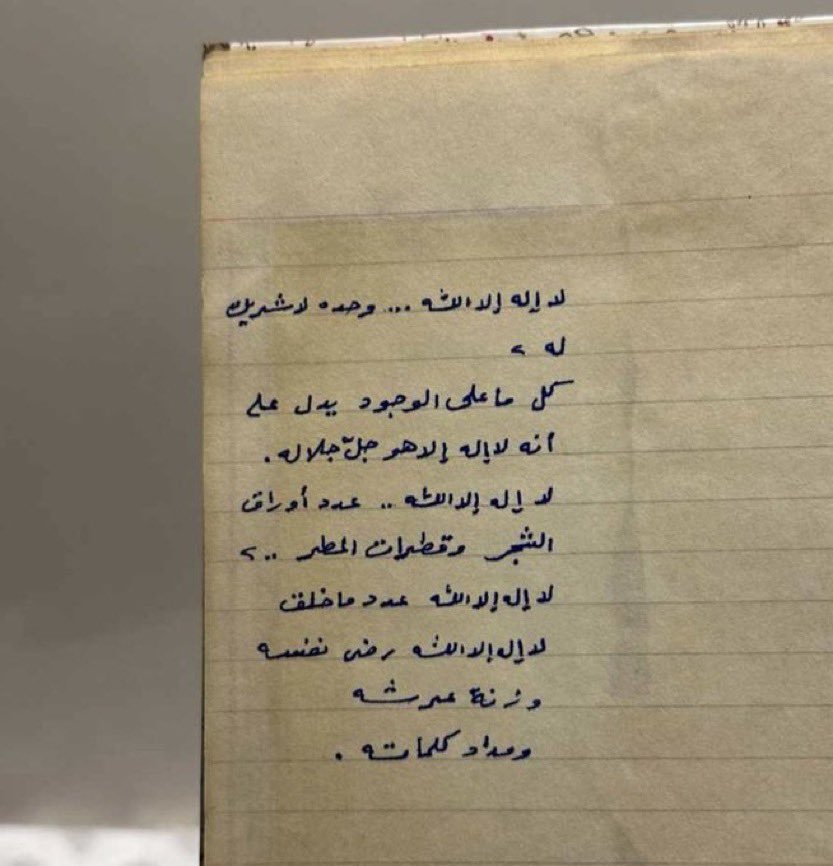 لا إله إلا الله ... وحده لا شريك
له ،
كل ما على الوجود يدل على
أنه لا إله إلا هو جلّ جلاله .
لا إله إلا الله .. عدد أوراق
الشجر وقطرات المطر .. ،
لا إله إلا الله عدد ما خلق
لا إله إلا الله رضى نفسه
وزنة عرشه
ومداد كلماته .